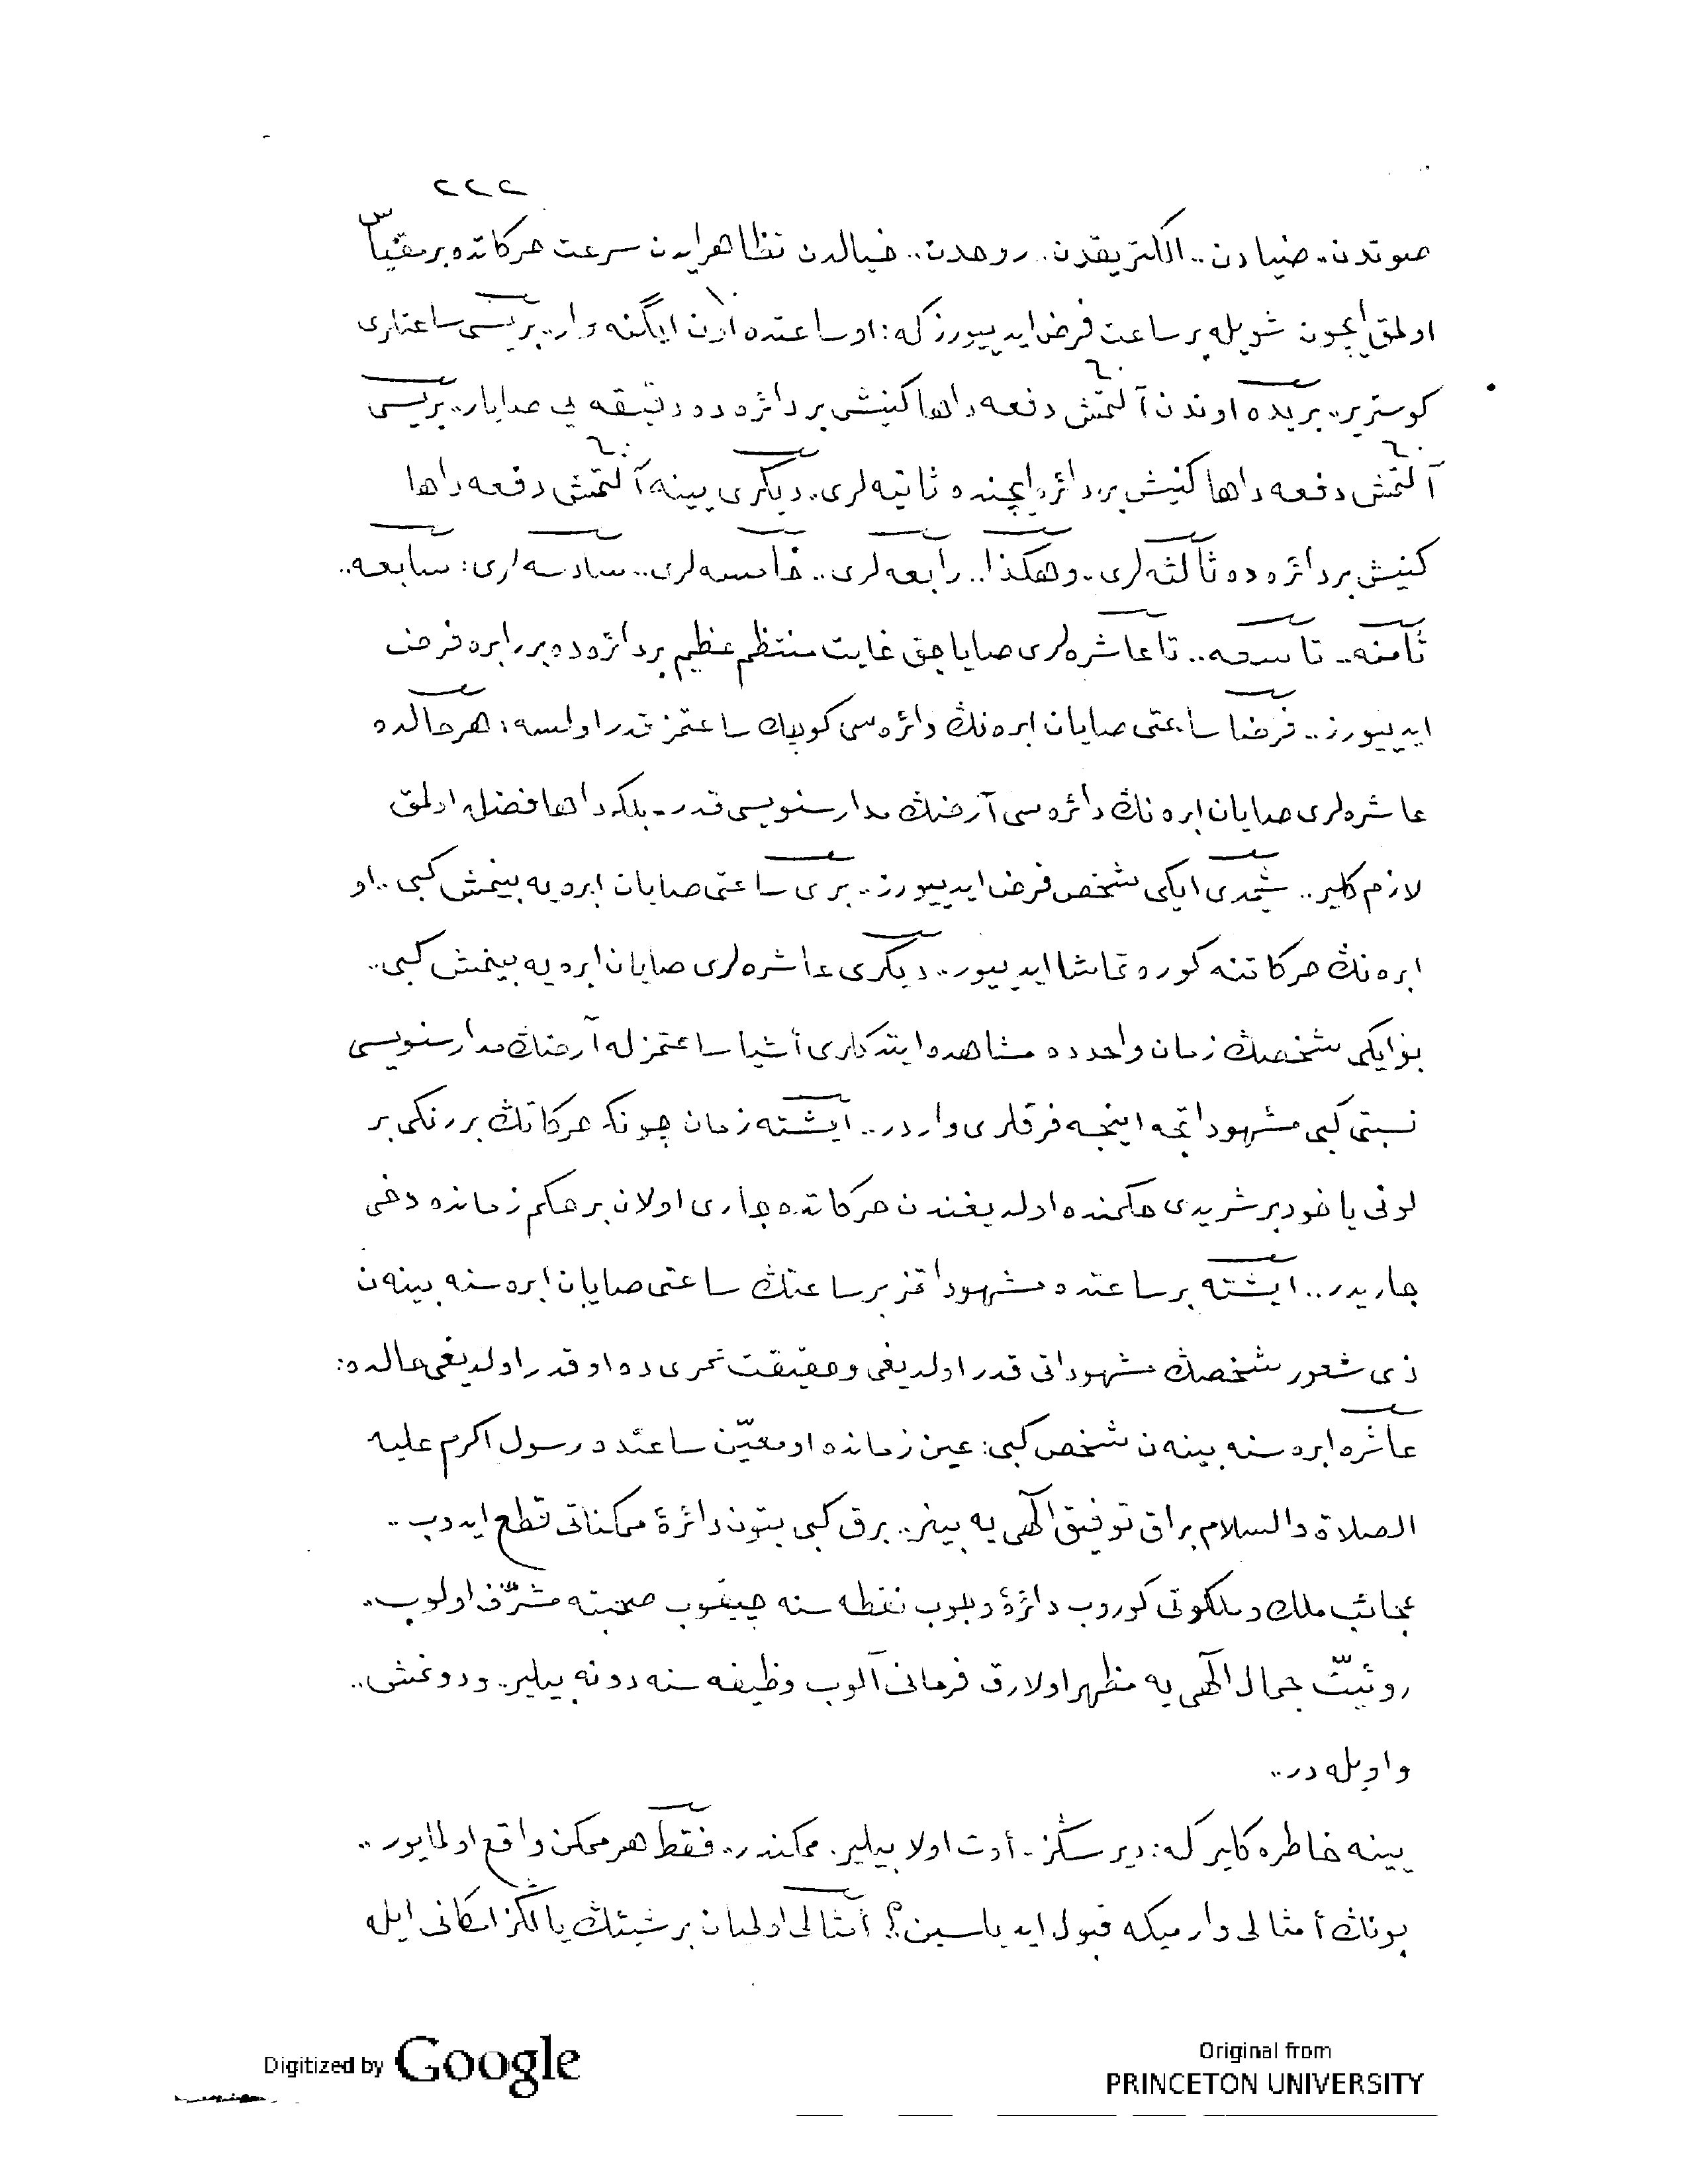 ٢٢٢
صوتدن.. ضيادن.. الكتريقدن.. روحدن.. خيالدن تظاهر ايدن سرعت حركاتده بر مقياس
اولمق ايچون شويله بر ساعت فرض ايدييورز كه: او ساعتده اون ايگنه وار.. بريسى ساعتلرى
١٠
كوسترير.. بريده اوندن آلتمش دفعه داها كنيش بر دائره ده دقيقه يى صايار.. بريسى
٦٠
آلتمش دفعه داها كنيش بر دائره ايچنده ثانيه لرى.. ديگرى يينه آلتمش دفعه داها
٦٠ ٦٠
كنيش بر دائره ده ثالثه لرى.. وهكذا.. رابعه لرى.. خامسه لرى.. سادسه لرى: سابعه..
ثامنه.. تاسعه.. تا عاشره لرى صاياجق غايت منتظم عظيم بر دائره ده برر ابره فرض
ايدييورز.. فرضا ساعتى صايان ابره نڭ دائره سى كوچك ساعتمز قدر اولسه؛ هر حالده
عاشره لرى صايان ابره نڭ دائره سى آرضڭ مدار سنويسى قدر.. بلكه داها فضله اولمق
لازم كلير.. شيمدى ايكى شخص فرض ايدييورز.. برى ساعتى صايان ابره يه بينمش كبى.. او
ابره نڭ حركاتنه كوره تماشا ايدييور.. ديگرى عاشره لرى صايان ابره يه بينمش كبى..
بو ايكى شخصڭ زمان واحدده مشاهده ايتدكلرى أشيا ساعتمزله آرضڭ مدار سنويسى
نسبتى كبى مشهوداتجه اينجه فرقلرى واردر.. ايشته زمان چونكه حركاتڭ بر رنكى بر
لونى ياخود بر شريدى حكمنده اولديغندن حركاتده جارى اولان بر حكم زمانده دخى
جاريدر.. ايشته بر ساعتده مشهوداتمز بر ساعتڭ ساعتى صايان ابره سنه بينه ن
ذى شعور شخصڭ مشهوداتى قدر اولديغى وحقيقت عمرى ده او قدر اولديغى حالده:
عاشره ابره سنه بينه ن شخص كبى: عين زمانده او معيّن ساعتده رسول اكرم عليه
الصلاة والسلام براق توفيق الٓهى يه بينر.. برق كبى بتون دائرۀ ممكناتى قطع ايدوب..
عجائب ملك وملكوتى كوروب دائرۀ وجوب نقطه سنه چيقوب صحبته مشرّف اولوب..
روئيتّ جمال الٓهى يه مظهر اولارق فرمانى آلوب وظيفه سنه دونه بيلير.. ودونمش..
واويله در..
يينه خاطره كلير كه: ديرسڭز.. أوت اولا بيلير. ممكندر.. فقط هر ممكن واقع اولمايور..
بونڭ أمثالى وارميكه قبول ايديلسين؟ أمثالى اولميان بر شيئڭ يالڭز امكانى ايله
Digitized by Google
Original from
PRINCETON UNIVERSITY